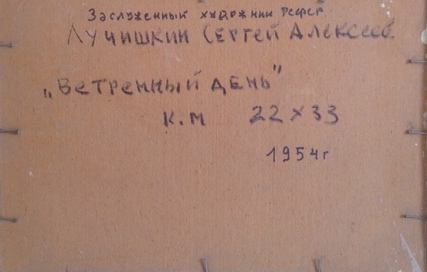 Заслуженный художник РСФСР
Лучишкин Сергей Алексеев.
„Ветренный день"
К.М 22×33
1954г